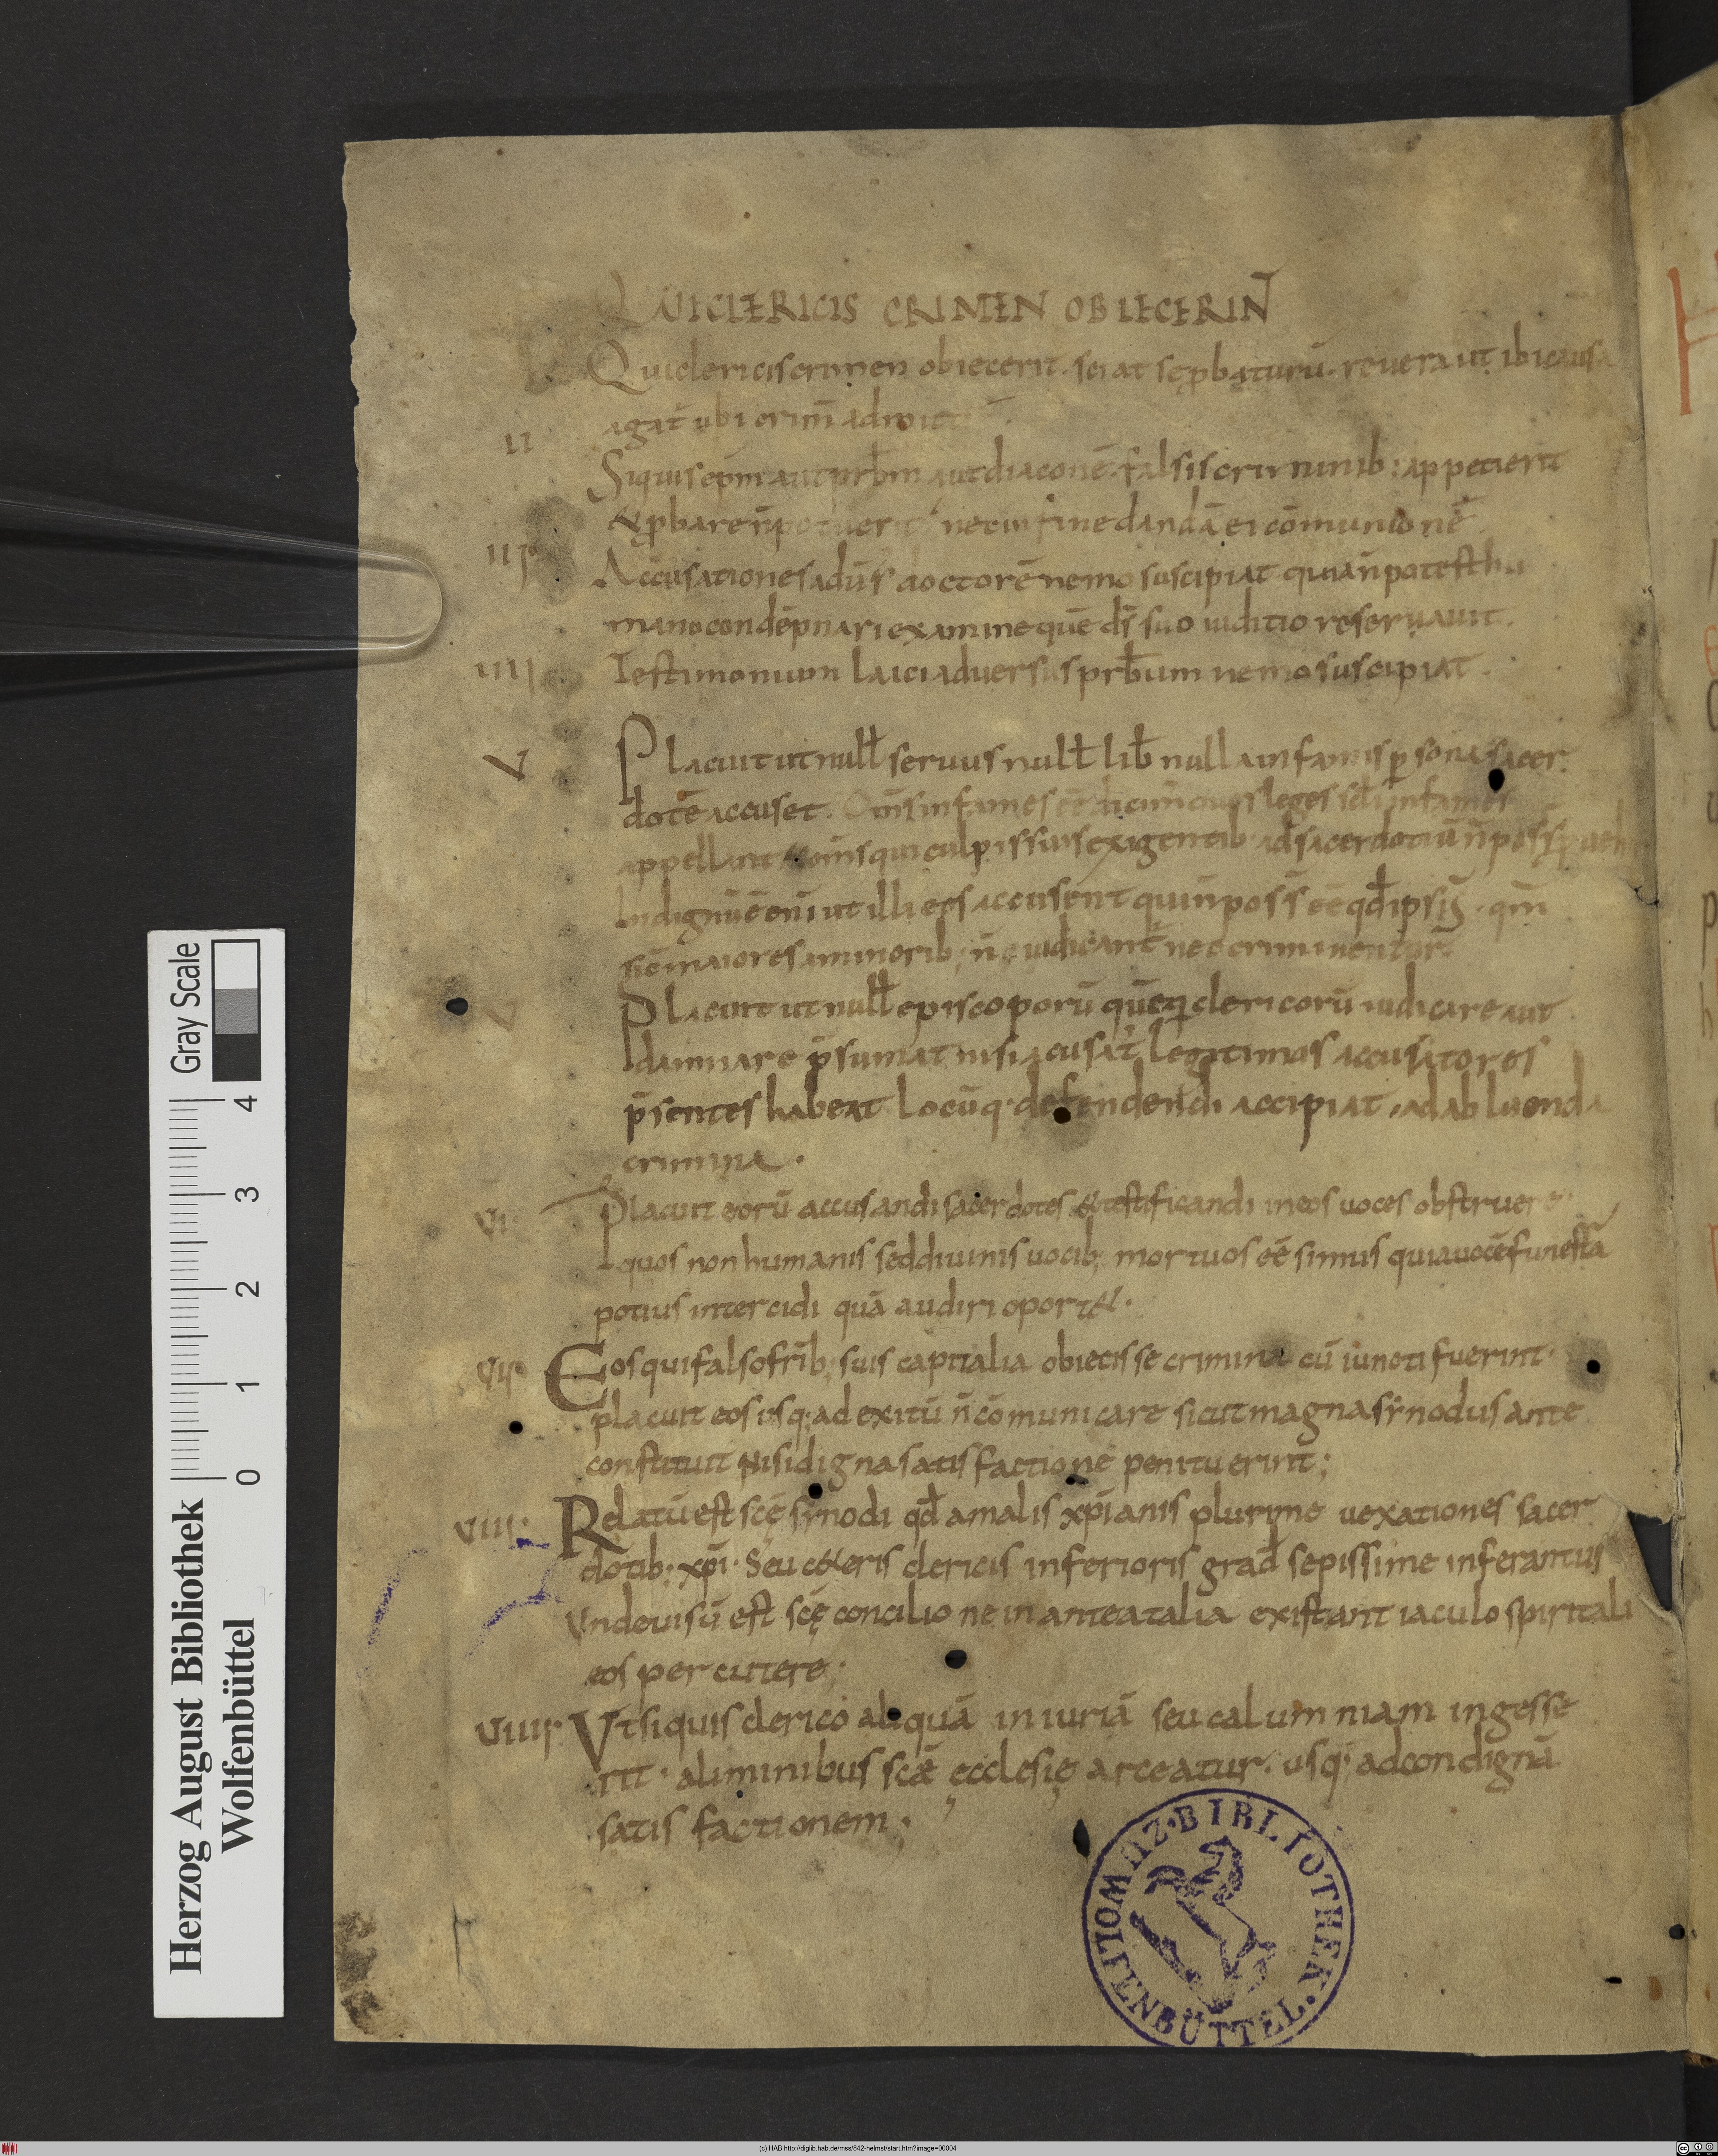 QUI CLERICIS CRIMEN OBIECERIN̄
Qui clericis crimen obiecerit. sciat se ꝓbaturū. revera ut ibi causa
agat̄ ubi crim̄ admit
II
Siquis ep̄m aut prb̄m aut diaconē. falsis criminib; appetierit
& ꝓbare n̄ potuerit nec in fine dandā ei cōmunionē
III
Accusationes adūs̄ doctorē nemo suscipiat quia n̄ potest hu
mano condēpnari examine quē d̄s suo iuditio reservavit.
IIII
Testimonium laici adversus prb̄um nemo suscipiat.
V
Placuit ut null̄ servus null̄ lib̄ nulla infamis ꝑsona sacer
dotē accuset. Om̄s infames eē leges sc̄li infames
appellant & om̄s qui culpis suis exigentib; ad sacerdotiū n̄ poss̄
Indignū ē eni ut illi eos accusent qui n̄ poss̄ eē qd̄ ipsi s̄. qm̄
sic maiores a minorib; n̄ iudicant̄ nec criminentur
V
Placuit ut null̄ episcoporū quēq; clericorū iudicare aut
damnare p̄sumat nisi accusat̄ legitimos accusatores
p̄sentes habeat locūq; defendendi accipiat. ad abluenda
crimina.
VI
Placuit eorū accusandi sacerdotes & testificandi in eos voces obstruere
quos non humanis sed divinis vocib; mortuos eē simus quia vocē funestā
potius intercidi quā audiri oport&.
VII
Eos qui falso fr̄ib; suis capitalia obiecisse crimina cū iuncti fuerint
placuit eos usq; ad exitū n̄ cōmunicare sicut magna sinodus ante
constituit Nisi digna satisfactione penituerint;
VIII
Relatū est scę sinodi qd̄ a malis xp̄ianis plurime vexationes sacer
dotib; xp̄i. Seu c&eris clericis inferioris grad̄ sepissime inferantur
Unde visū est scę concilio ne in antea talia existant iaculo spiritali
eos percutere;
VIIII
Ut si quis clerico aliquā iniuriā seu calumniam ingesse
rit. a liminibus scǣ ęcclesię arceatur. usq; ad condignā
satisfactionem;
BIBLIOTHEK. WOLFENBÜTTEL.
Herzog August Bibliothek
Wolfenbüttel
0 1 2 3 4
Gray Scale
(c) HAB http://diglib.hab.de/mss/842-helmst/start.htm?image=00004